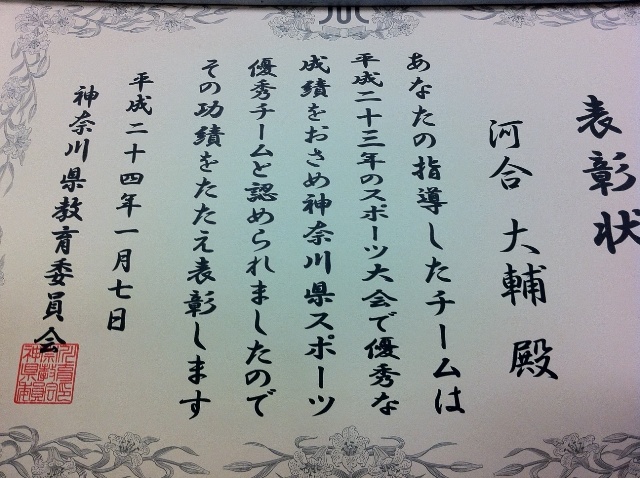 表彰状
河合 大輔 殿
あなたの指導したチームは
平成二十三年のスポーツ大会で優秀な
成績をおさめ神奈川県スポーツ
優秀チームと認められましたので
その功績をたたえ表彰します
平成二十四年一月七日
神奈川県教育委員会